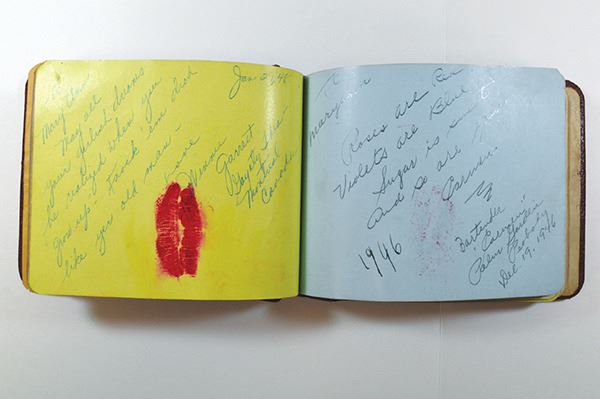 To
Mary Ann
Jan 2, 46
May all
your girlish dreams
be realized when you
grow up - Knock 'em dead
like yer old man -
Love
Winnie Garrett
Gayety Theatre
Montreal
Canada
To
Mary Ann
Roses are Red
Violets are Blue
Sugar is
and so are
Carmen
1946
Bartender
"Carmen"
Palm
Peabody
Dec. 19, 1946